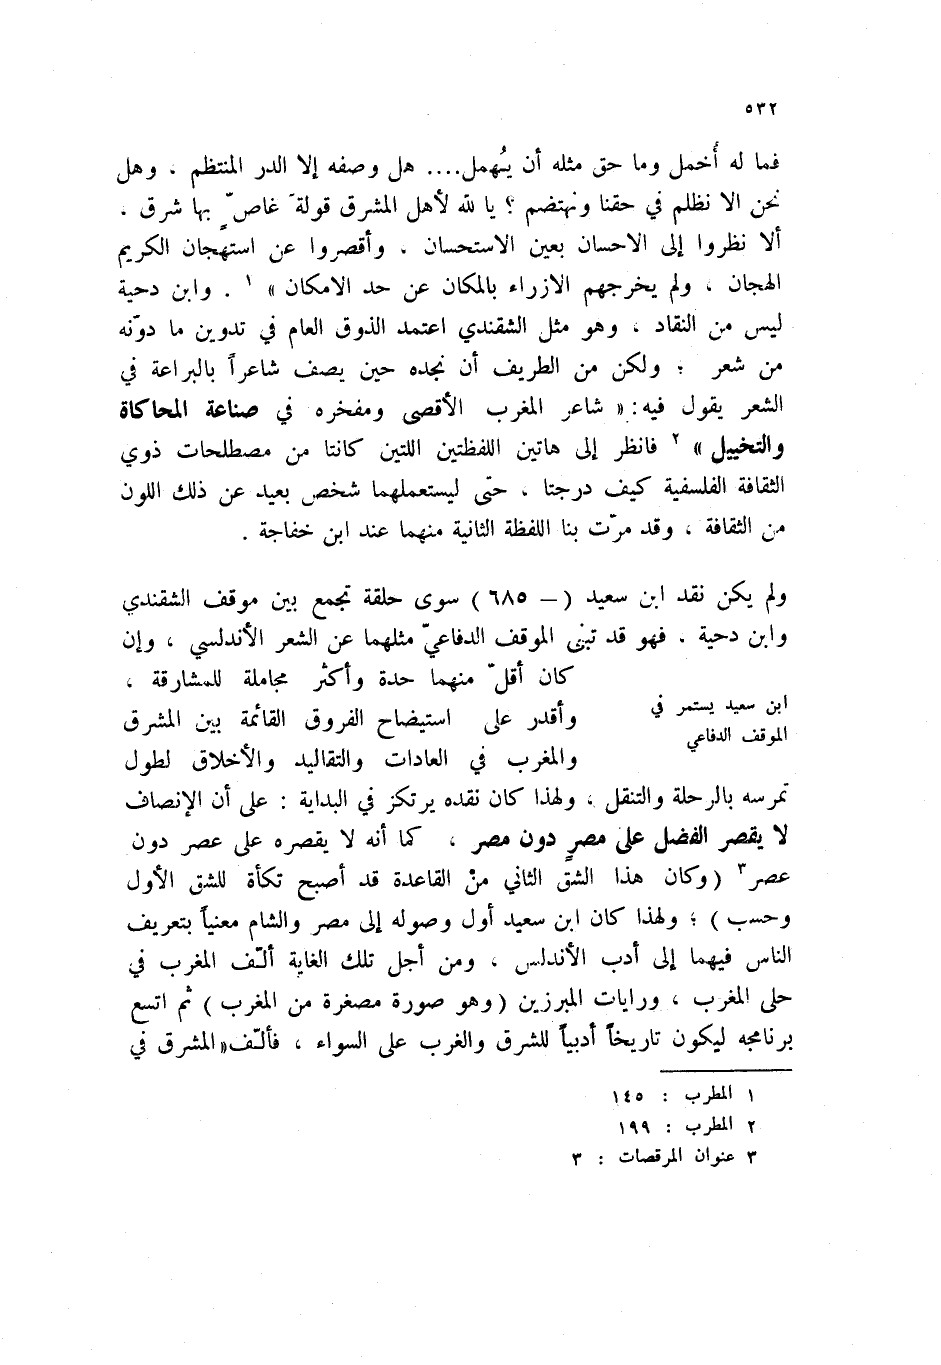 ٥٣٢
فما له أُخمل وما حق مثله أن يُهمل.... هل وصفه إلا الدر المنتظم ، وهل
نحن الا نظلم في حقنا ونهتضم ؟ يا لله لأهل المشرق قولةَ غاصٍّ بها شرق .
ألا نظروا إلى الاحسان بعين الاستحسان . وأقصروا عن استهجان الكريم
الهجان ، ولم يخرجهم الازراء بالمكان عن حد الامكان » ١ . وابن دحية
ليس من النقاد ، وهو مثل الشقندي اعتمد الذوق العام في تدوين ما دوّنه
من شعر ؛ ولكن من الطريف أن نجده حين يصف شاعراً بالبراعة في
الشعر يقول فيه: « شاعر المغرب الأقصى ومفخره في صناعة المحاكاة
والتخييل » ٢ فانظر إلى هاتين اللفظتين اللتين كانتا من مصطلحات ذوي
الثقافة الفلسفية كيف درجتا ، حتى ليستعملهما شخص بعيد عن ذلك اللون
من الثقافة ، وقد مرّت بنا اللفظة الثانية منهما عند ابن خفاجة .
ولم يكن نقد ابن سعيد ( – ٦٨٥ ) سوى حلقة تجمع بين موقف الشقندي
وابن دحية . فهو قد تبنى الموقف الدفاعيّ مثلهما عن الشعر الأندلسي ، وإن
كان أقلّ منهما حدة وأكثر مجاملة للمشارقة ،
ابن سعيد يستمر في
الموقف الدفاعي
وأقدر على استيضاح الفروق القائمة بين المشرق
والمغرب في العادات والتقاليد والأخلاق لطول
تمرسه بالرحلة والتنقل ، ولهذا كان نقده يرتكز في البداية : على أن الإنصاف
لا يقصر الفضل على مصرٍ دون مصر ، كما أنه لا يقصره على عصر دون
عصر ٣ ( وكان هذا الشق الثاني منْ القاعدة قد أصبح تكأة للشق الأول
وحسب ) ؛ ولهذا كان ابن سعيد أول وصوله إلى مصر والشام معنياً بتعريف
الناس فيهما إلى أدب الأندلس ، ومن أجل تلك الغاية ألّف المغرب في
حلى المغرب ، ورايات المبرزين ( وهو صورة مصغرة من المغرب ) ثم اتسع
برنامجه ليكون تاريخاً أدبياً للشرق والغرب على السواء ، فألّف « المشرق في
١ المطرب : ١٤٥
٢ المطرب : ١٩٩
٣ عنوان المرقصات : ٣